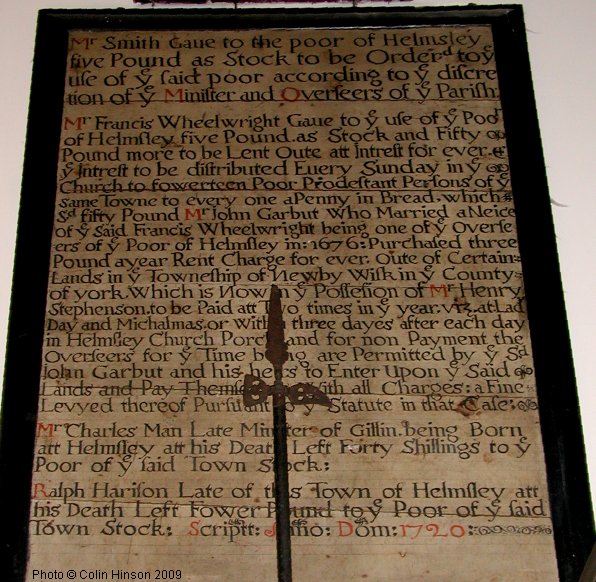 Mr Smith Gaue to the poor of Helmsley
five Pound as Stock to be Orderd to ye
use of ye said poor according to ye discre
tion of ye Minister and Overseers of ye Parish.
Mr Francis Wheelwright Gaue to ye use of ye Poo
of Helmsley five Pound. as Stock and Fifty
Pound more to be Lent Oute att Intrest for ever.
ye Intrest to be distributed Euery Sunday in ye
Church to fowerteen Poor Prodestant Persons of ye
same Towne to every one a Penny in Bread. which
Sd fifty Pound Mr John Garbut Who Married a Neice
of ye Said Francis Wheelwright being one of ye Overse
ers of ye Poor of Helmsley in: 1676: Purchased three
Pound a year Rent Charge for ever. Oute of Certain
Lands in ye Towneship of Newby Wisk in ye County
of york. Which is Now in ye Possesion of Mr Henry
Stephenson. to be Paid att Two times in ye year. Viz. at Lad
Day and Michalmas. or Within three dayes after each day
in Helmsley Church Porch and for non Payment the
Overseers for ye Time being are Permitted by ye Sd
John Garbut and his heirs to Enter Upon ye Said
Lands and Pay Themselves with all Charges: a Fine
Levyed thereof Pursutant to ye Statute in that Case:
Mr Charles Man Late Minister of Gillin. being Born
att Helmsley att his Death Left Forty Shillings to ye
Poor of ye said Town Stock:
Ralph Harison Late of this Town of Helmsley att
his Death Left Fower Pound to ye Poor of ye said
Town Stock: Scriptt: Anno: Dom: 1720:
Photo © Colin Hinson 2009